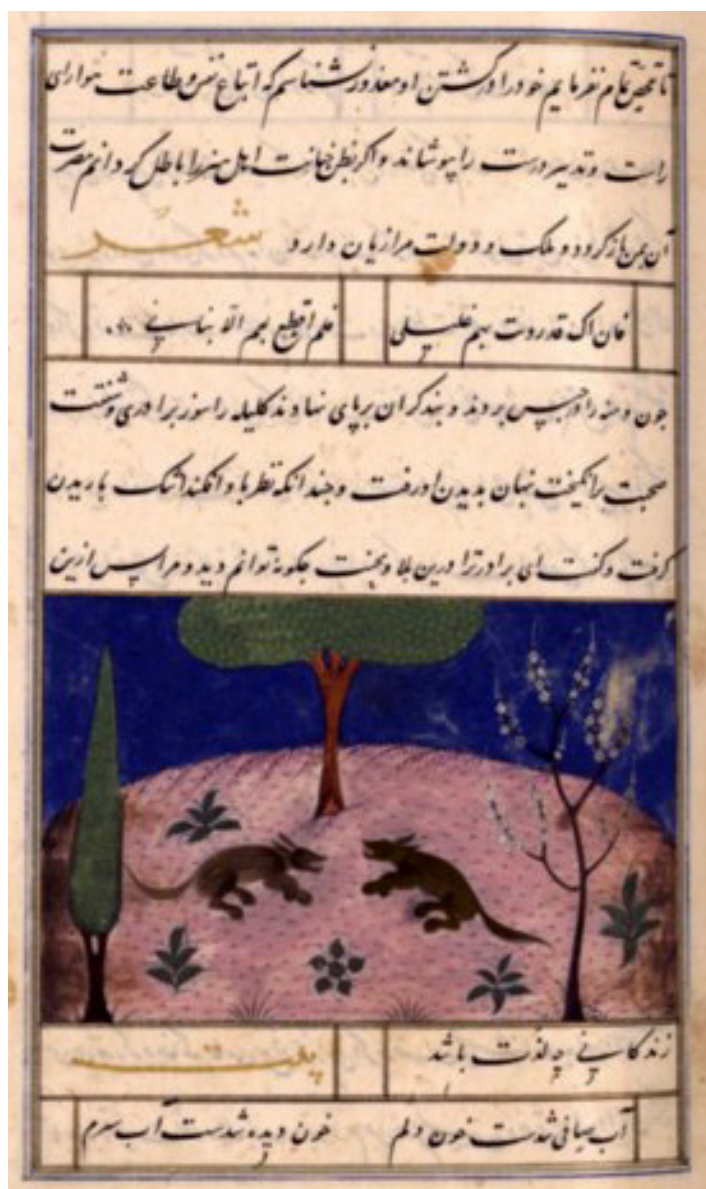 تا تفحص تمام نفرمایم خود را در کشتن او معذور نشناسم که اتباع نفس و طاعت هوا رای
راست و تدبیر درست را بپوشاند و اکر بظن خیانت اهل هنر را باطل کردانم مضرت
آن بمن باز کردد و ملک و دولت مرا زیان دارد شعر
فان اک قد بردت بهم غلیلی فلم اقطع بهم الا بنانی
جون دمنه را در حبس بردند و بند کران بر پای نهادند کلیله را سوز برادری و شفقت
صحبت برانکیخت نهان بدیدن او رفت و جندانکه نظر باو افکند اشک باریدن
کرفت و کفت ای برادر ترا درین بلا و محنت جکونه توانم دید و مرا پس ازین
زندکانی چه لذت باشد بیت
آب صافی شدست خون دلم خون دیده شدست آب سرم